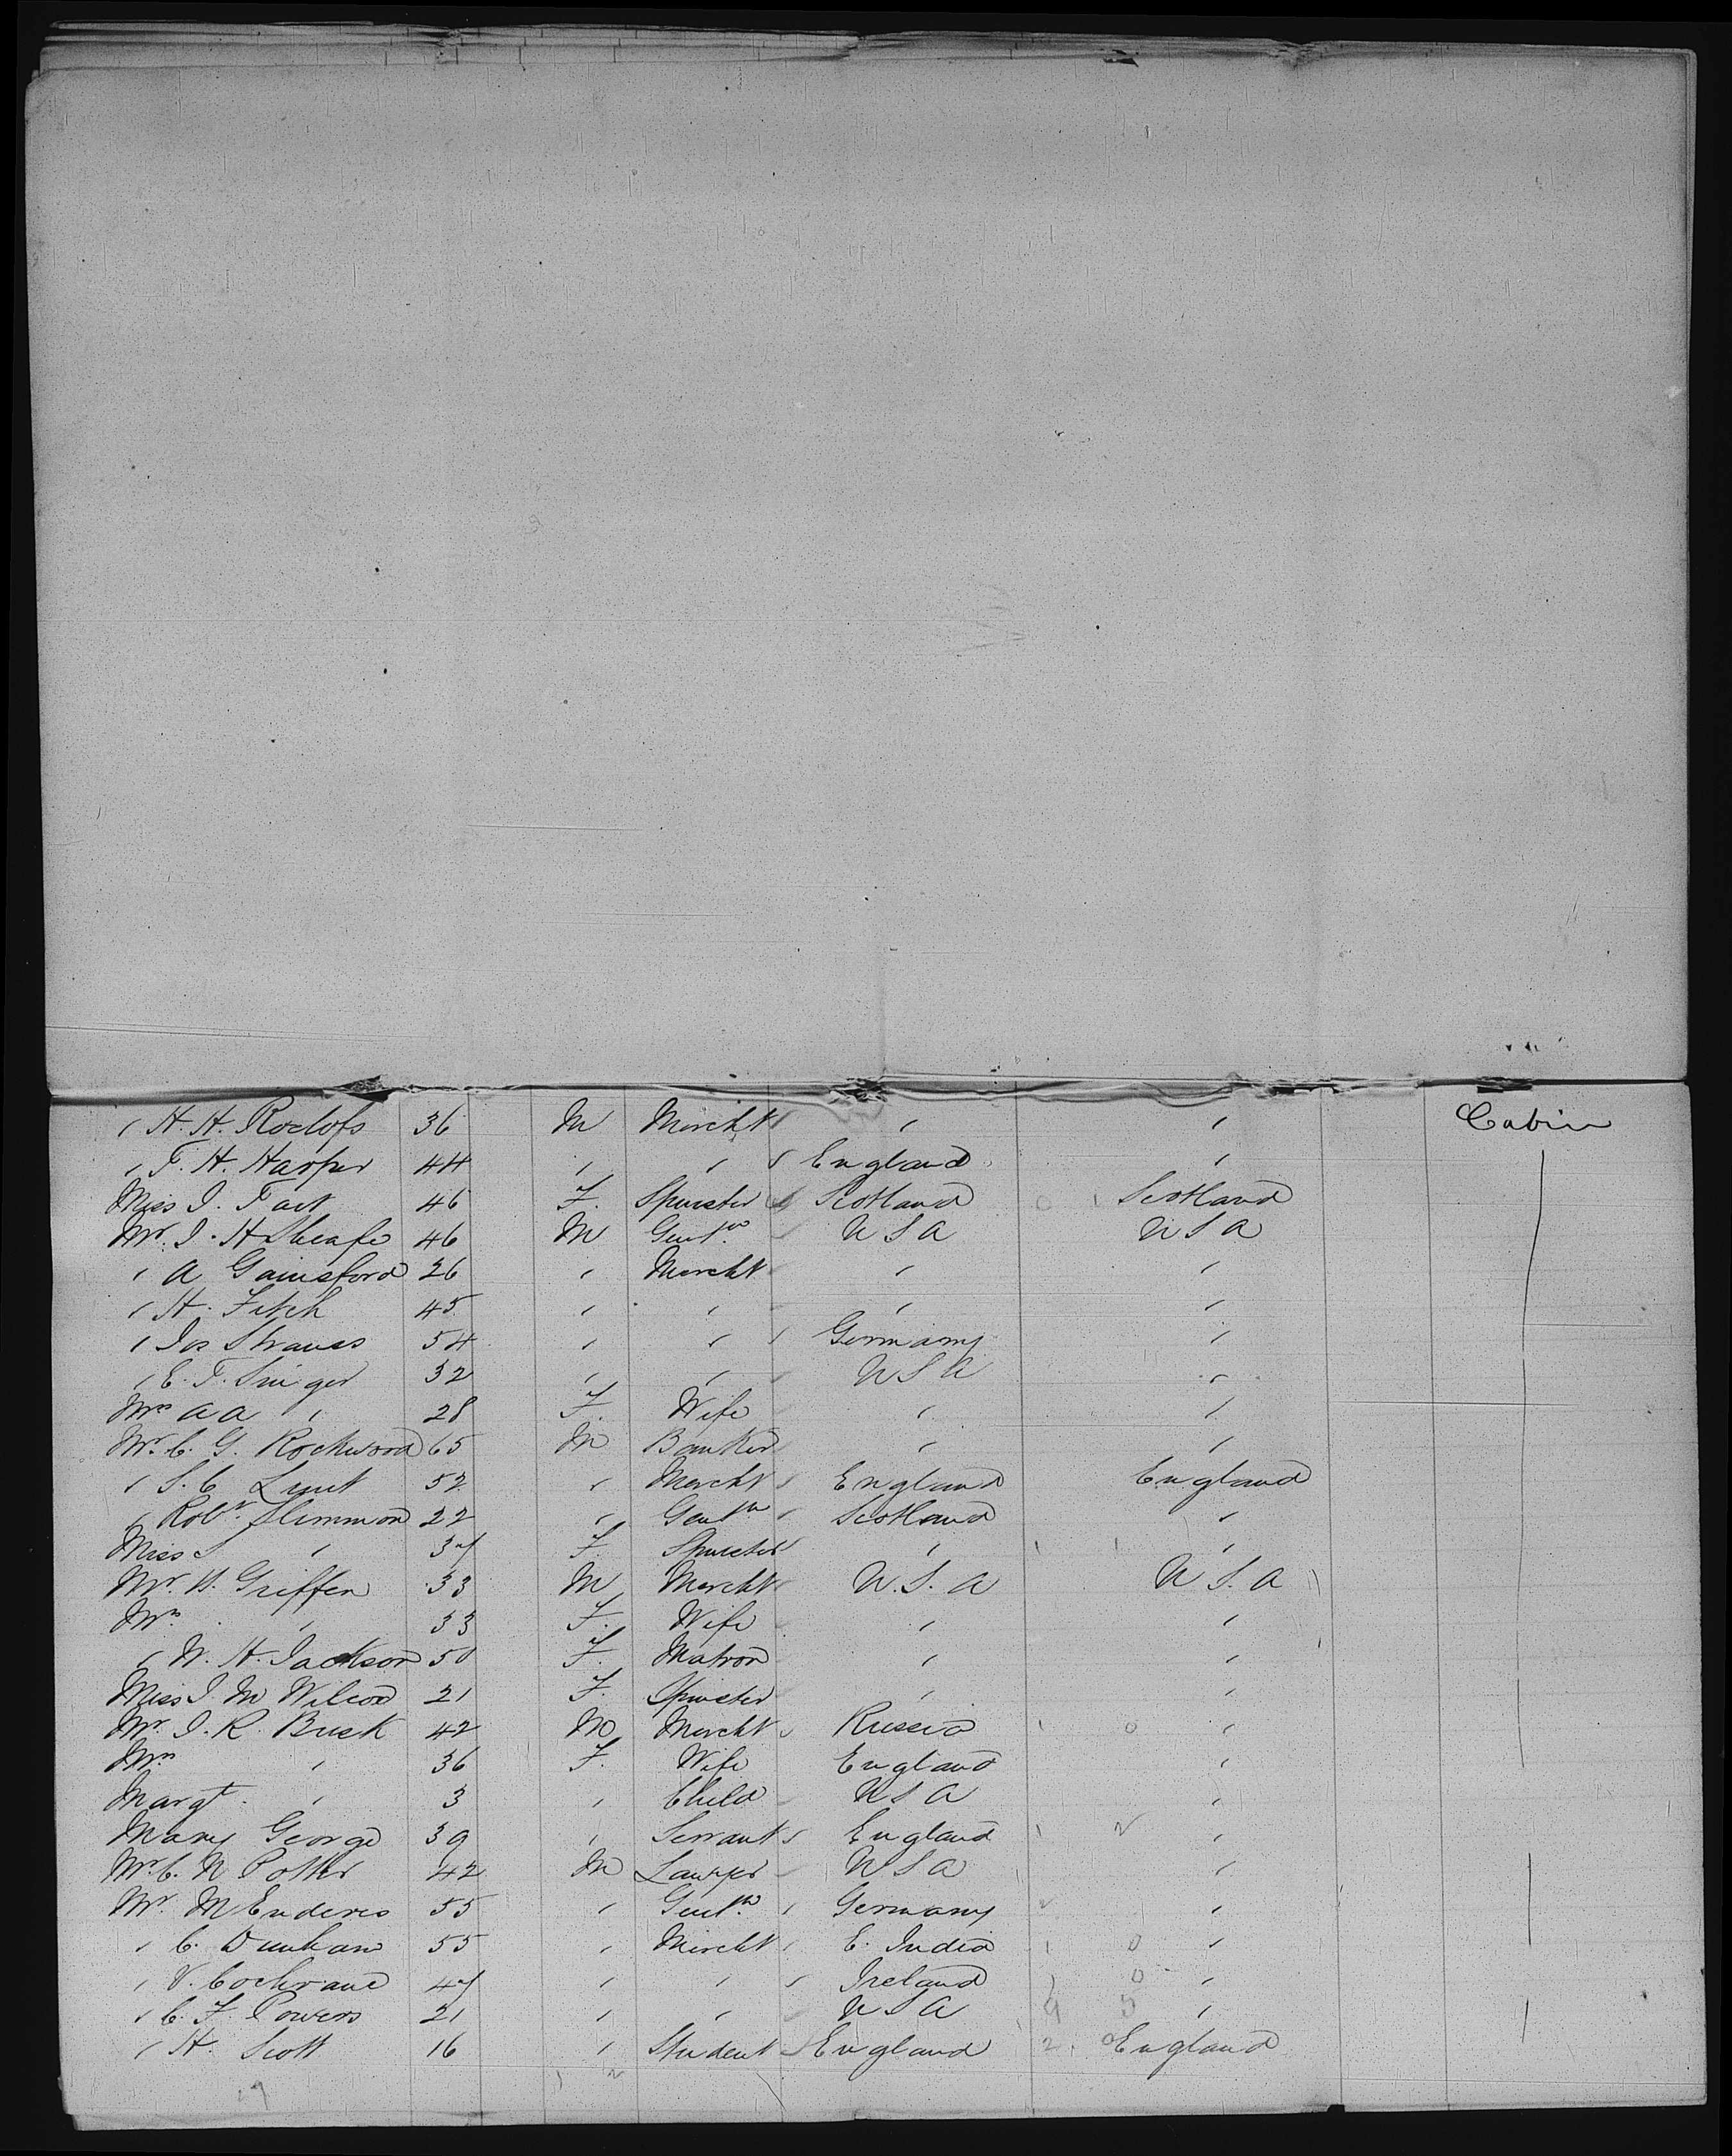 " H. H. Roelofs 36 M Mercht " " Cabin
" T. H. Harper 44 " " England "
Miss J. Tait 46 F. Spinster Scotland Scotland
Mr. J. H Sheafe 46 M Gentn. U S A U S A
" A Gainsford 26 " Mercht " "
" H. Fitch 45 " " " "
" Jos Strauss 54 " " Germany "
" E. T. Singer 32 " " U S A "
Mrs A A " 28 F. Wife " "
Mr. C. G. Rockwood 65 M Banker " "
" S. C Lunt 52 " Mercht England England
" Robt. Slimmon 22 " Gentn Scotland "
Miss S " 37 F. Spinster " "
Mr. H. Griffen 33 M Mercht U. S. A U S. A
Mrs " 33 F. Wife " "
" W. H. Jackson 50 F. Matron " "
Miss J. M Wilcox 21 F. Spinster " "
Mr. J. R. Busk 42 M Mercht Russia "
Mrs " 36 F. Wife England "
Margt. " 3 " Child U S A "
Mary George 39 " Servant England "
Mr. C. N Potter 42 M Lawyer U S A "
Mr. M Enderes 55 " Gentn. Germany "
" C. Dunham 55 " Mercht E. India "
" V. Cochrane 47 " " Ireland "
" C. F. Powers 21 " " U S A "
" H. Scott 16 " Student England England